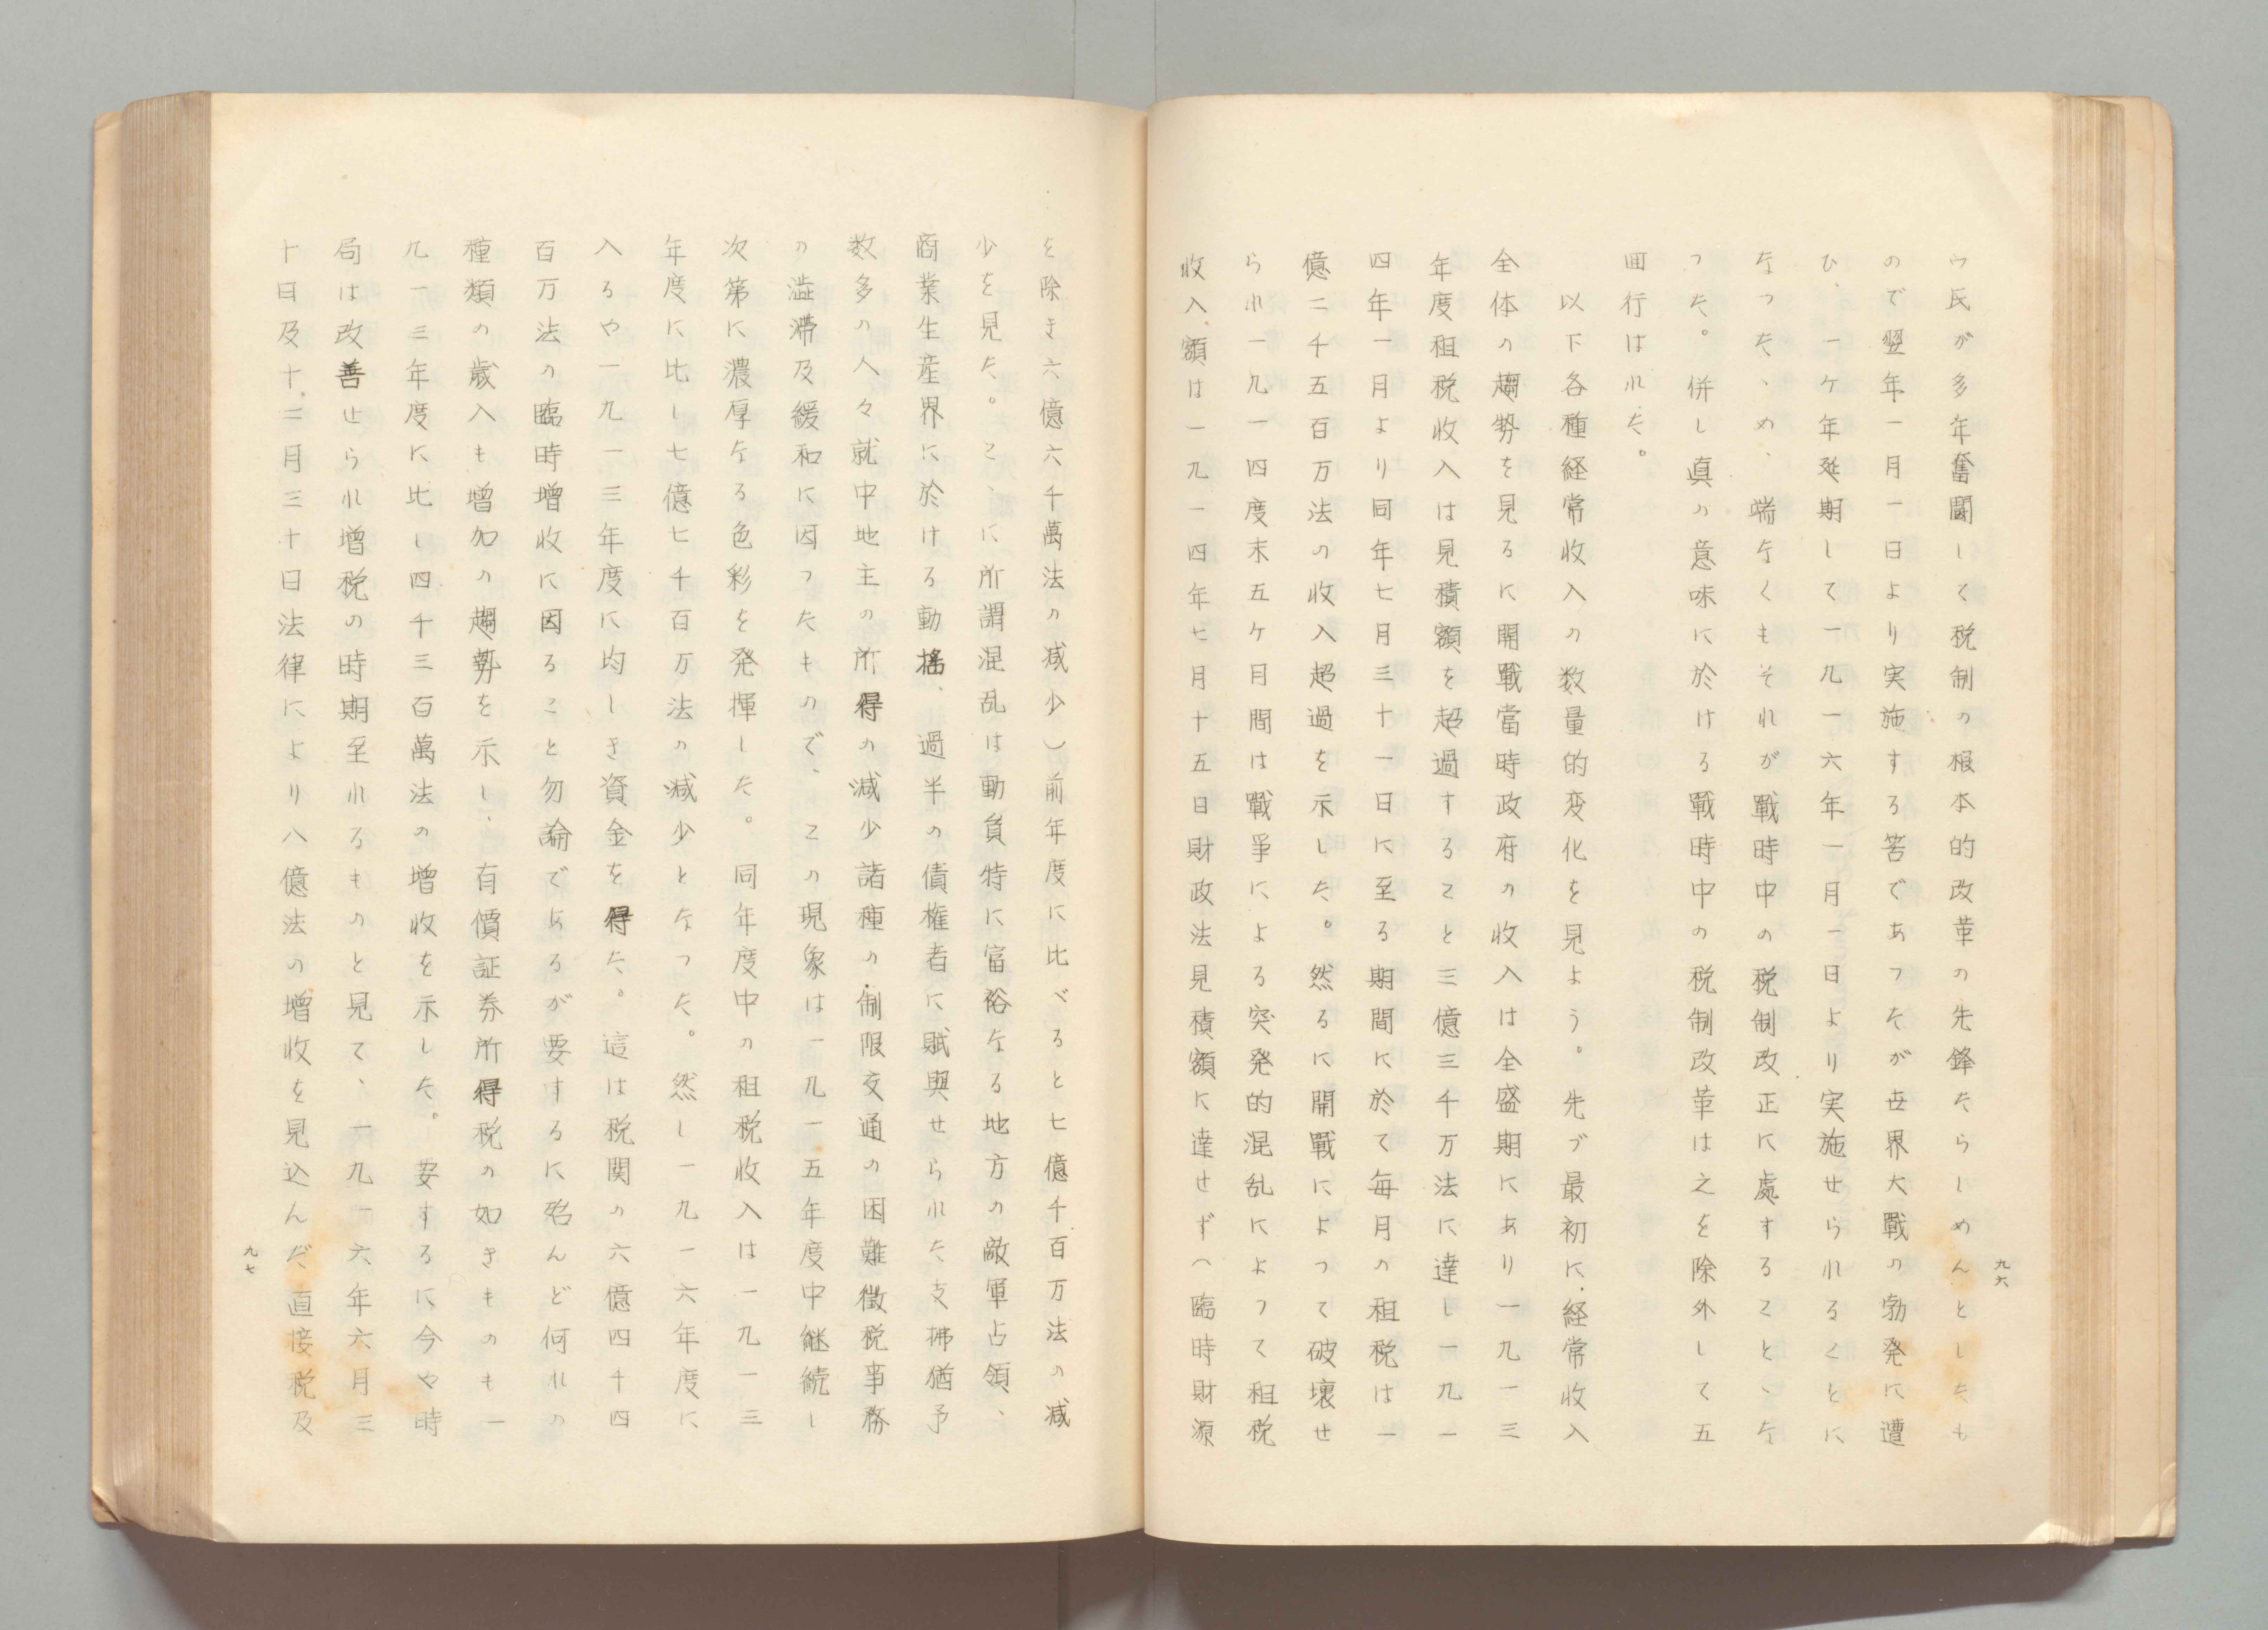 ウ民が多年奮闘して税制の根本的改革の先鋒たらしめんとしたも
ので翌年一月一日より実施する筈であつたが世界大戰の勃発に遭
ひ、一ケ年延期して一九一六年一月一日より実施せられることに
なつたゝめ、端なくもそれが戰時中の税制改正に處することゝな
つた。併し真の意味に於ける戰時中の税制改革は之を除外して五
囬行はれた。
以下各種経常收入の数量的変化を見よう。先づ最初に経常收入
全体の趨勢を見るに開戰當時政府の收入は全盛期にあり一九一三
年度租税收入は見積額を超過すること三億三千万法に達し一九一
四年一月より同年七月三十一日に至る期間に於て毎月の租税は一
億二千五百万法の收入超過を示した。然るに開戰によつて破壊せ
られ一九一四度末五ケ月間は戰爭による突発的混乱によつて租税
收入額は一九一四年七月十五日財政法見積額に達せず（臨時財源
九六
を除き六億六千萬法の減少）前年度に比べると七億千百万法の減
少を見た。こゝに所謂混乱は動員特に富裕なる地方の敵軍占領、
商業生産界に於ける動揺、過半の債権者に賦與せられた支拂猶予
数多の人々就中地主の所得の減少諸種の制限交通の困難徴税事務
の澁滞及緩和に因つたもので、この現象は一九一五年度中継続し
次第に濃厚なる色彩を発揮した。同年度中の租税收入は一九一三
年度に比し七億七千百万法の減少となつた。然し一九一六年度に
入るや一九一三年度に均しき資金を得た。這は税関の六億四千四
百万法の臨時增收に因ること勿論であるが要するに殆んど何れの
種類の歳入も増加の趨勢を示し、有價証券所得税の如きものも一
九一三年度に比し四千三百萬法の増收を示した。要するに今や時
局は改善せられ増税の時期至れるものと見て、一九一六年六月三
十日及十二月三十日法律により八億法の増收を見込んだ直接税及
九七